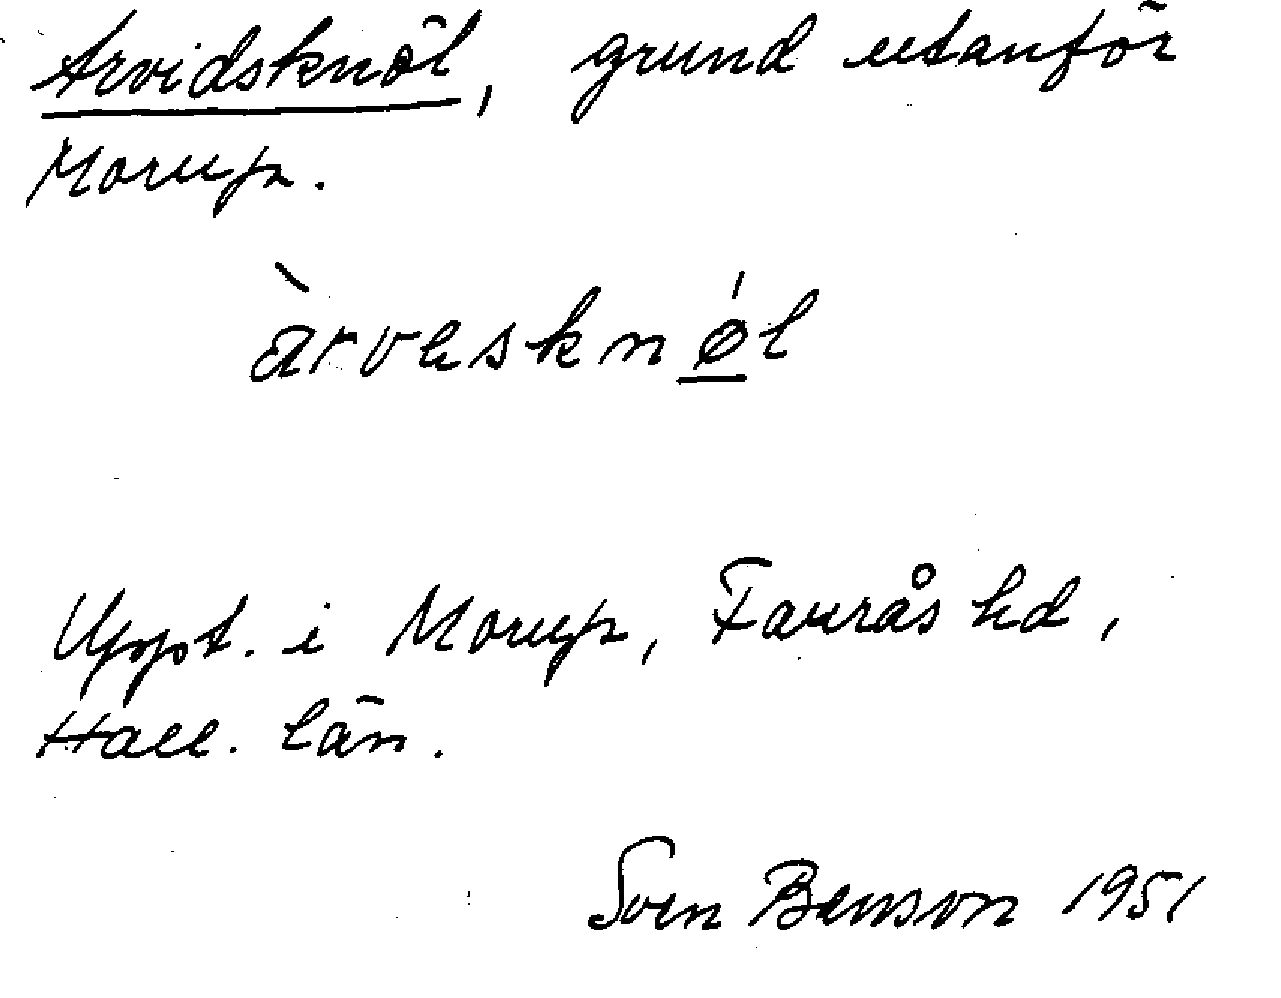 Arvidsknöl, grund utanför
Morup.
àrvesknǿl
Uppt. i Morup, Faurås hd,
Hall. län.
Sven Benson 1951